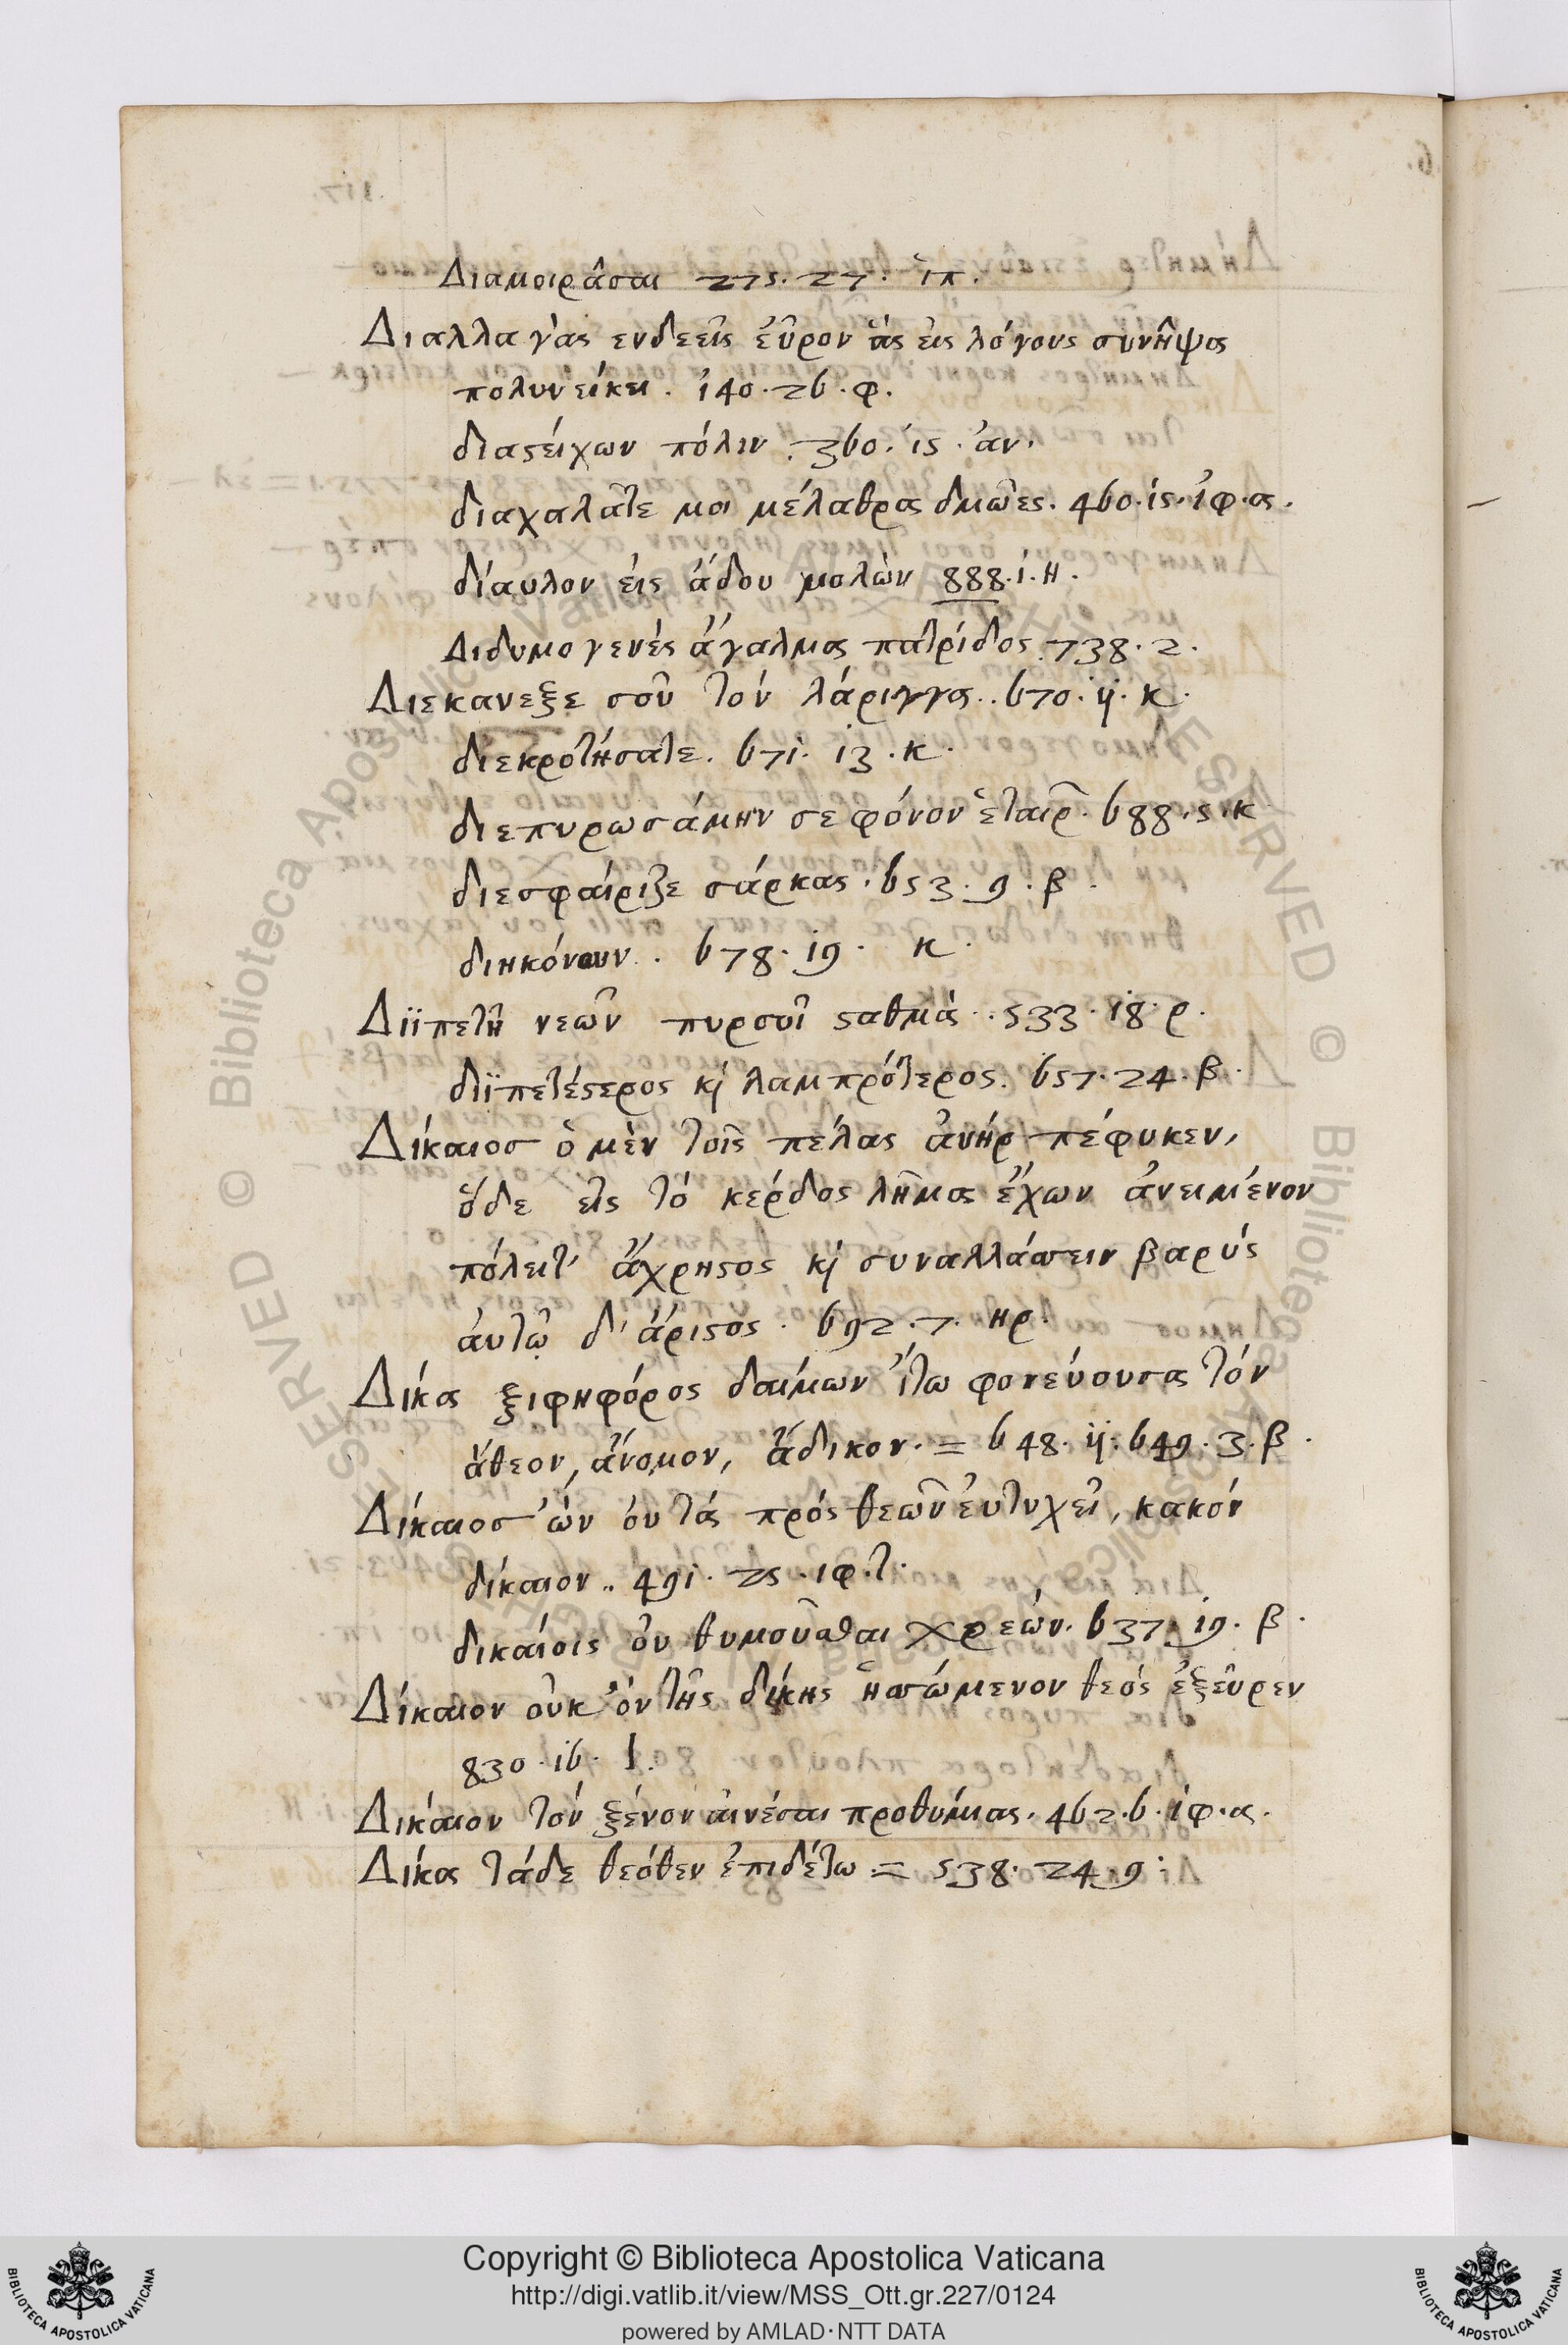 Διαμοιρᾶσαι 275. 27. ἱπ.
Διαλλαγὰς ενδεεῖς ἕυρον ἃς ἐις λόγους συνῆψα
πολυνείκει. 140. 26. φ.
διαϛείχων πόλιν. 360. 15. ἀν.
διαχαλᾶτε μοι μέλαθρα δμῶες. 460. 15. ἰφ. α.
δίαυλον ἐις ἅδου μολὼν 888. 1. Η.
Διδυμογενὲς ἄγαλμα πατρίδος. 738. 2.
Διεκαναξε σοῦ τὸν λάριγγα.. 670. ij. κ.
διεκροτήσατε. 671. 13. κ.
διεπυρωσάμην σε φόνον ἑταιρ. 688. 5. κ
διεσφαίριζε σάρκας. 653. 9. β.
διηκόνουν. 678. 19. κ.
Διϊπετῆ νεῶν πυρσοῖ ϛαθμά.. 533. 18. ρ.
διϊπετέϛερος κὶ λαμπρότερος. 657. 24. β.
Δίκαιοσ ὁ μὲν τοῖς πέλας ἀνήρ πέφυκεν,
ὅδε εἰς τό κέρδος λῆμα ἔχων ἀνειμένον
πόλειτ' ἄχρηϛος κὶ συναλλάσσειν βαρύς
ἀυτῷ δ' ἄριϛος. 692. 7. ηρ.
Δίκα ξιφηφόρος δαίμων ἴτω φονεύουσα τόν
ἄθεον, ἄνομον, ἄδικον. = 648. ij. 649. 3. β.
Δίκαιοσ ὢν ὁυ τά πρός θεῶν ἐυτυχεῖ, κακόν
δίκαιον.. 491. 25. ιφ. τ.
δικαίοις ὀυ θυμοῦσθαι χρεών. 637. 19. β.
Δίκαιον οὐκ ὂν τῆς δίκης ἡσσώμενον θεός ἐξεῦρεν
830. 16.
Δικάιον τόν ξένον ἀινέσαι προθυμίας. 462. 6. ἰφ. α.
Δίκα τάδε θεόθεν ἐπιδέτω = 538. 24. 9.
Copyright © Biblioteca Apostolica Vaticana
http://digi.vatlib.it/view/MSS_Ott.gr.227/0124
powered by AMLAD·NTT DATA
BIBLIOTECA APOSTOLICA VATICANA
BIBLIOTECA APOSTOLICA VATICANA